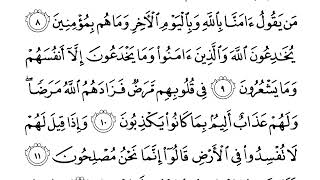 مَن يَقُولُ ءَامَنَّا بِٱللَّهِ وَبِٱلۡيَوۡمِ ٱلۡأٓخِرِ وَمَا هُم بِمُؤۡمِنِينَ ٨
يُخَٰدِعُونَ ٱللَّهَ وَٱلَّذِينَ ءَامَنُواْ وَمَا يَخۡدَعُونَ إِلَّآ أَنفُسَهُمۡ
وَمَا يَشۡعُرُونَ ٩ فِي قُلُوبِهِم مَّرَضٞ فَزَادَهُمُ ٱللَّهُ مَرَضٗاۖ
وَلَهُمۡ عَذَابٌ أَلِيمُۢ بِمَا كَانُواْ يَكۡذِبُونَ ١٠ وَإِذَا قِيلَ لَهُمۡ
لَا تُفۡسِدُواْ فِي ٱلۡأَرۡضِ قَالُوٓاْ إِنَّمَا نَحۡنُ مُصۡلِحُونَ ١١